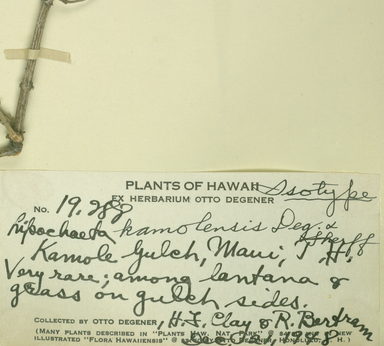 PLANTS OF HAWAII Isotype
EX HERBARIUM OTTO DEGENER
No. 19,
lipochaeta kamolensis Deg. & Sherff
Kamole Gulch, Maui, T. H.
Very rare; among lantana &
grass on gulch sides.
COLLECTED BY OTTO DEGENER, H. F. Clay & R. Bertram
(MANY PLANTS DESCRIBED IN "PLANTS HAW. NAT. PARK" @ IN NEW
ILLUSTRATED "FLORA HAWAIIENSIS" @ OTTO DEGENER, HONOLULU, H.)